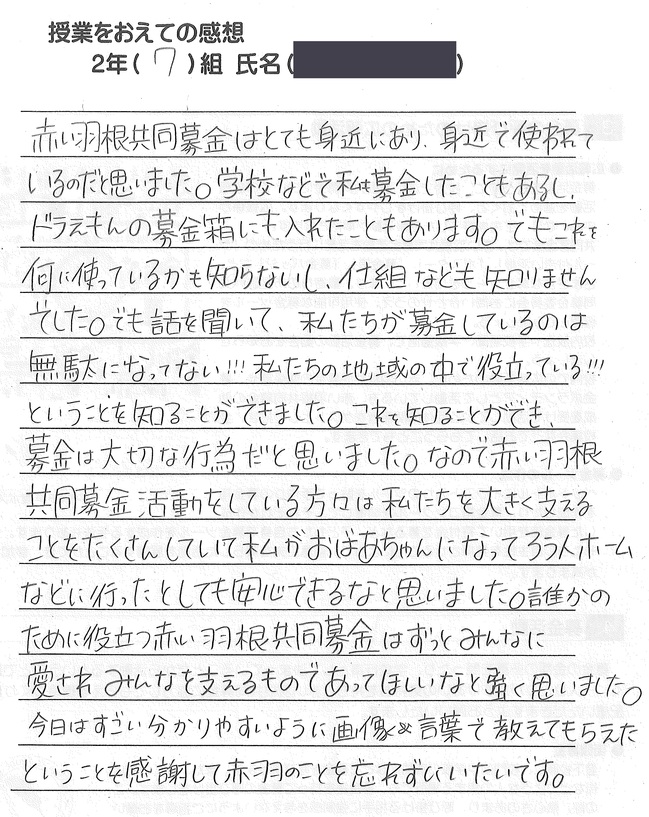 授業をおえての感想
2年(7)組 氏名( )
赤い羽根共同募金はとても身近にあり、身近で使われて
いるのだと思いました。学校などで私は募金したこともあるし、
ドラえもんの募金箱にも入れたこともあります。でもこれを
何に使っているかも知らないし、仕組なども知りません
でした。でも話を聞いて、私たちが募金しているのは
無駄になってない!!!私たちの地域の中で役立っている!!!
ということを知ることができました。これを知ることができ、
募金は大切な行為だと思いました。なので赤い羽根
共同募金活動をしている方々は私たちを大きく支える
ことをたくさんしていて私がおばあちゃんになってろう人ホーム
などに行ったとしても安心できるなと思いました。誰かの
ために役立つ赤い羽根共同募金はずっとみんなに
愛され みんなを支えるものであってほしいなと強く思いました。
今日はすごい分かりやすいように画像や言葉で教えてもらえた
ということを感謝して赤羽のことを忘れずにいたいです。